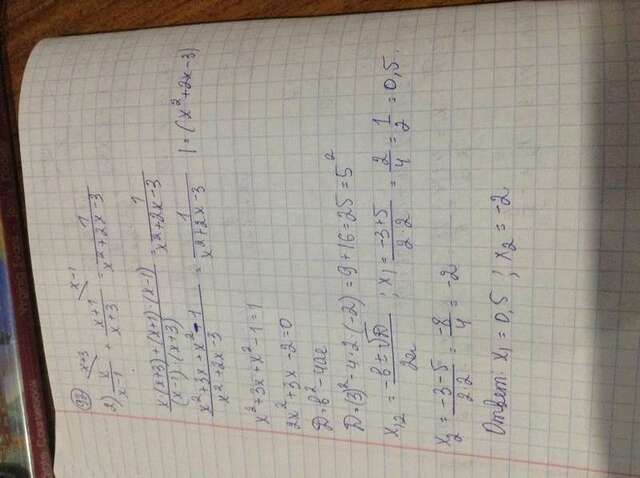 2) x/(x-1) \x+3 + (x+1)/(x+3) \x-1 = 1/(x²+2x-3)
(x·(x+3)+(x+1)·(x-1))/((x-1)·(x+3)) = 1/(x²+2x-3)
(x²+3x+x²-1)/(x²+2x-3) = 1/(x²+2x-3) | = (x²+2x-3)
x²+3x+x²-1=1
2x²+3x-2=0
D=b²-4ac
D=(3)²-4·2·(-2)=9+16=25=5²
x₁₂ = (-b±√D)/2a ; x₁ = (-3+5)/(2·2) = 2/4 = 1/2 = 0,5.
x₂ = (-3-5)/(2·2) = -8/4 = -2
Ответ: x₁=0,5 ; x₂=-2